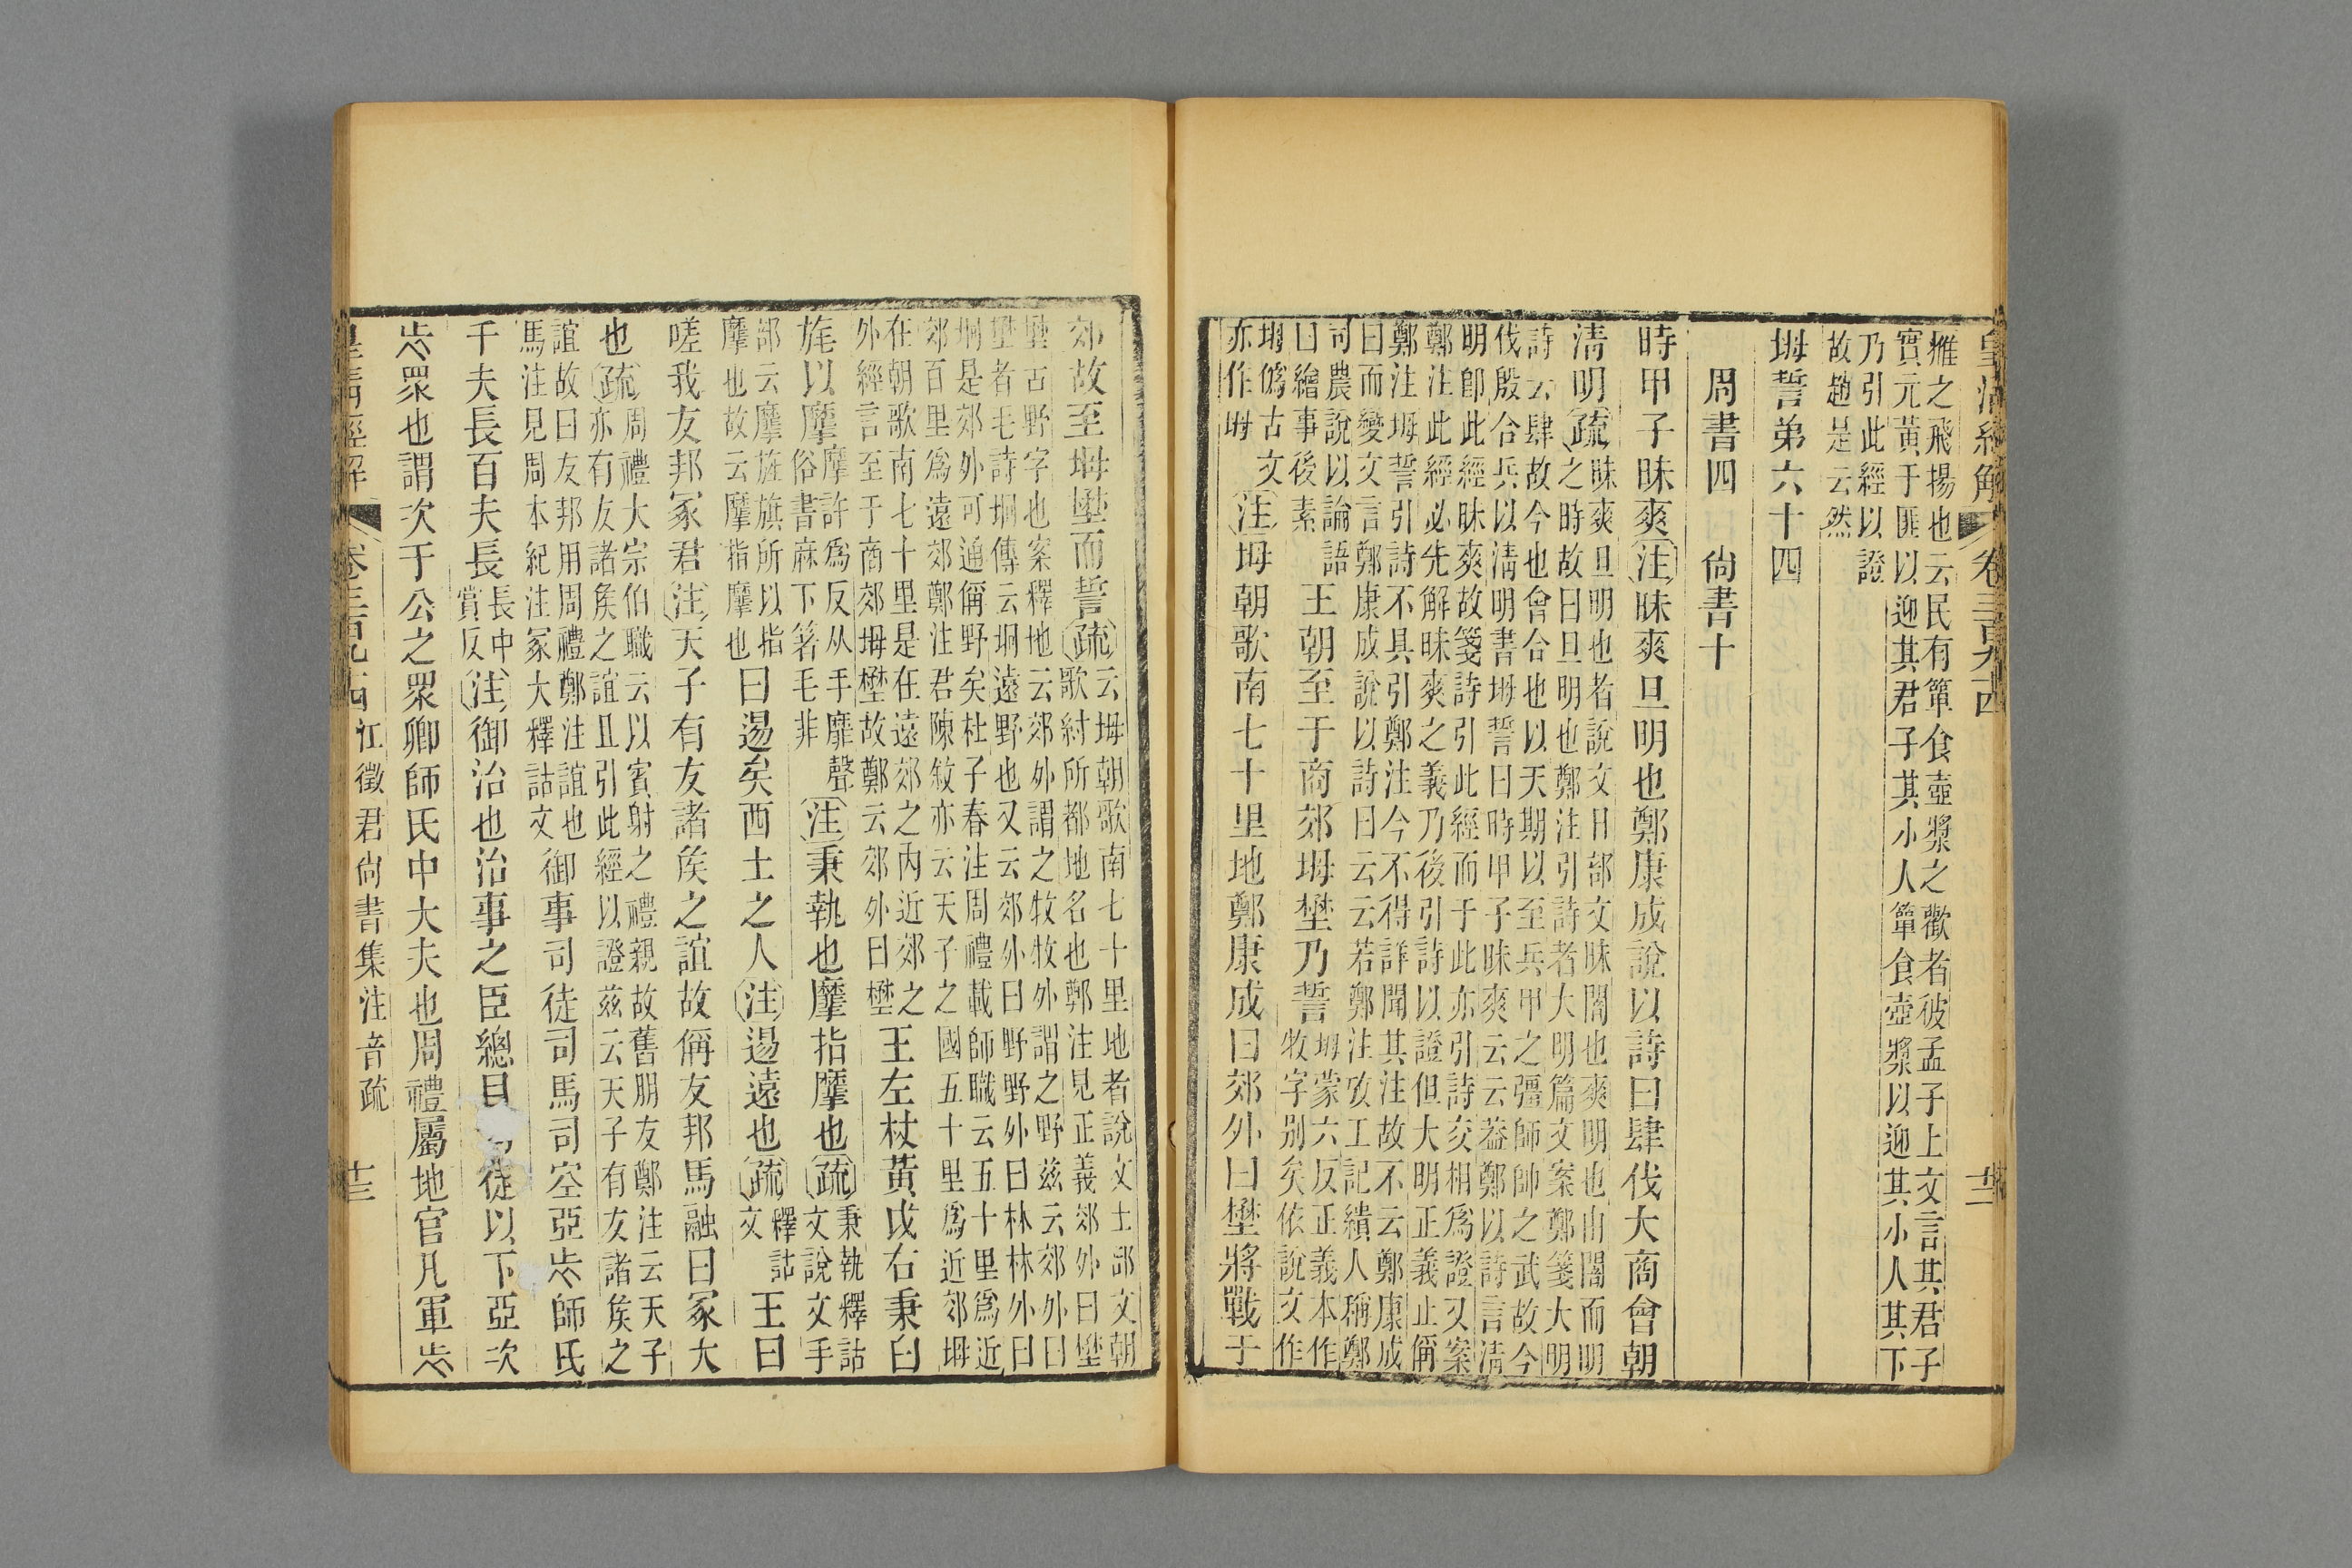 皇清經解 卷三百九十四 十二
摧之飛揚也云民有簞食壺漿之歡者彼孟子上文言其君子
實元黃于匪以迎其君子其小人簞食壺漿以迎其小人其下
乃引此經以證
故趙是云然
坶誓弟六十四
周書四 尙書十
時甲子昧爽注昧爽旦明也鄭康成說以詩曰肆伐大商會朝
淸明疏
昧爽旦明也者說文日部文昧闇也爽明也由闇而明
之時故曰旦明也鄭注引詩者大明篇文案鄭箋大明
詩云肆故今也會合也以天期以至兵甲之彊師帥之武故今
伐殷合兵以淸明書坶誓曰時甲子昧爽云云葢鄭以詩言淸
明卽此經昧爽故箋詩引此經而于此亦引詩交相爲證又案
鄭注此經必先解昧爽之義乃後引詩以證但大明正義止偁
鄭注坶誓引詩不具引鄭注今不得詳聞其注故不云鄭康成
曰而變文言鄭康成說以詩曰云云若鄭注攷工記繢人稱鄭
司農說以論語
曰繪事後素
王朝至于商郊坶壄乃誓
坶蒙六反正義本作
牧字别矣依說文作
坶僞古文
亦作坶
注坶朝歌南七十里地鄭康成曰郊外曰壄將戰于
郊故至坶壄而誓疏
云坶朝歌南七十里地者說文土部文朝
歌紂所都地名也鄭注見正義郊外曰壄
壄古野字也案釋地云郊外謂之牧牧外謂之野兹云郊外曰
壄者毛詩坰傳云坰遠野也又云郊外曰野野外曰林林外曰
坰是郊外可通偁野矣杜子春注周禮載師職云五十里爲近
郊百里爲遠郊鄭注君陳敘亦云天子之國五十里爲近郊坶
在朝歌南七十里是在遠郊之內近郊之
外經言至于商郊坶壄故鄭云郊外曰壄
王左杖黃戉右秉白
旄以摩
摩許爲反从手靡聲
俗書麻下箸毛非
注秉執也摩指摩也疏
秉執釋詁
文說文手
部云摩旌旗所以指
摩也故云摩指摩也
曰逷矣西土之人注逷遠也疏
釋詁
文
王曰
嗟我友邦冢君注天子有友諸矦之誼故偁友邦馬融曰冢大
也疏
周禮大宗伯職云以賓射之禮親故舊朋友鄭注云天子
亦有友諸矦之誼且引此經以證兹云天子有友諸矦之
誼故曰友邦用周禮鄭注誼也
馬注見周本紀注冢大釋詁文
御事司徒司馬司空亞𣥏師氏
千夫長百夫長
長中
賞反
注御治也治事之臣總目徒以下亞次
𣥏眾也謂次于公之眾卿師氏中大夫也周禮屬地官凡軍𣥏
皇清經解 卷三百九十四 江徵君尙書集注音疏 十三